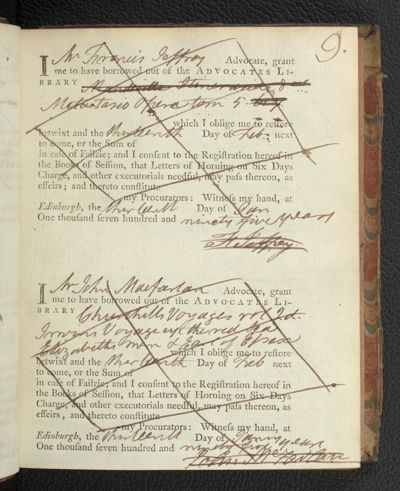 9.
I Mr Francis Jeffrey Advocate, grant
me to have borrowed out of the ADVOCATES LI-
BRARY
Metastasio Opere tom 5
which I oblige me to restore
betwixt and the thirteenth Day of Feb: next
to come, or the Sum of
in case of Failzie; and I consent to the Registration hereof in
the Books of Session, that Letters of Horning on Six Days
Charge, and other executorials needful, may pass thereon, as
effeirs; and thereto constitute
my Procurators: Witness my hand, at
Edinburgh, the thirteenth Day of Jan
One thousand seven hundred and ninety five years
Jeffrey
I Mr John Macfarlan Advocate, grant
me to have borrowed out of the ADVOCATES LI-
BRARY Churchills Voyages vol 2d
Irwins Voyage up the red Sea
Elizabeth &
which I oblige me to restore
betwixt and the thirteenth Day of Feb next
to come, or the Sum of
in case of Failzie; and I consent to the Registration hereof in
the Books of Session, that Letters of Horning on Six Days
Charge, and other executorials needful, may pass thereon, as
effeirs, and thereto constitute
my Procurators: Witness my hand, at
Edinburgh, the thirteenth Day of Jany
One thousand seven hundred and ninety five years
John McFarlan